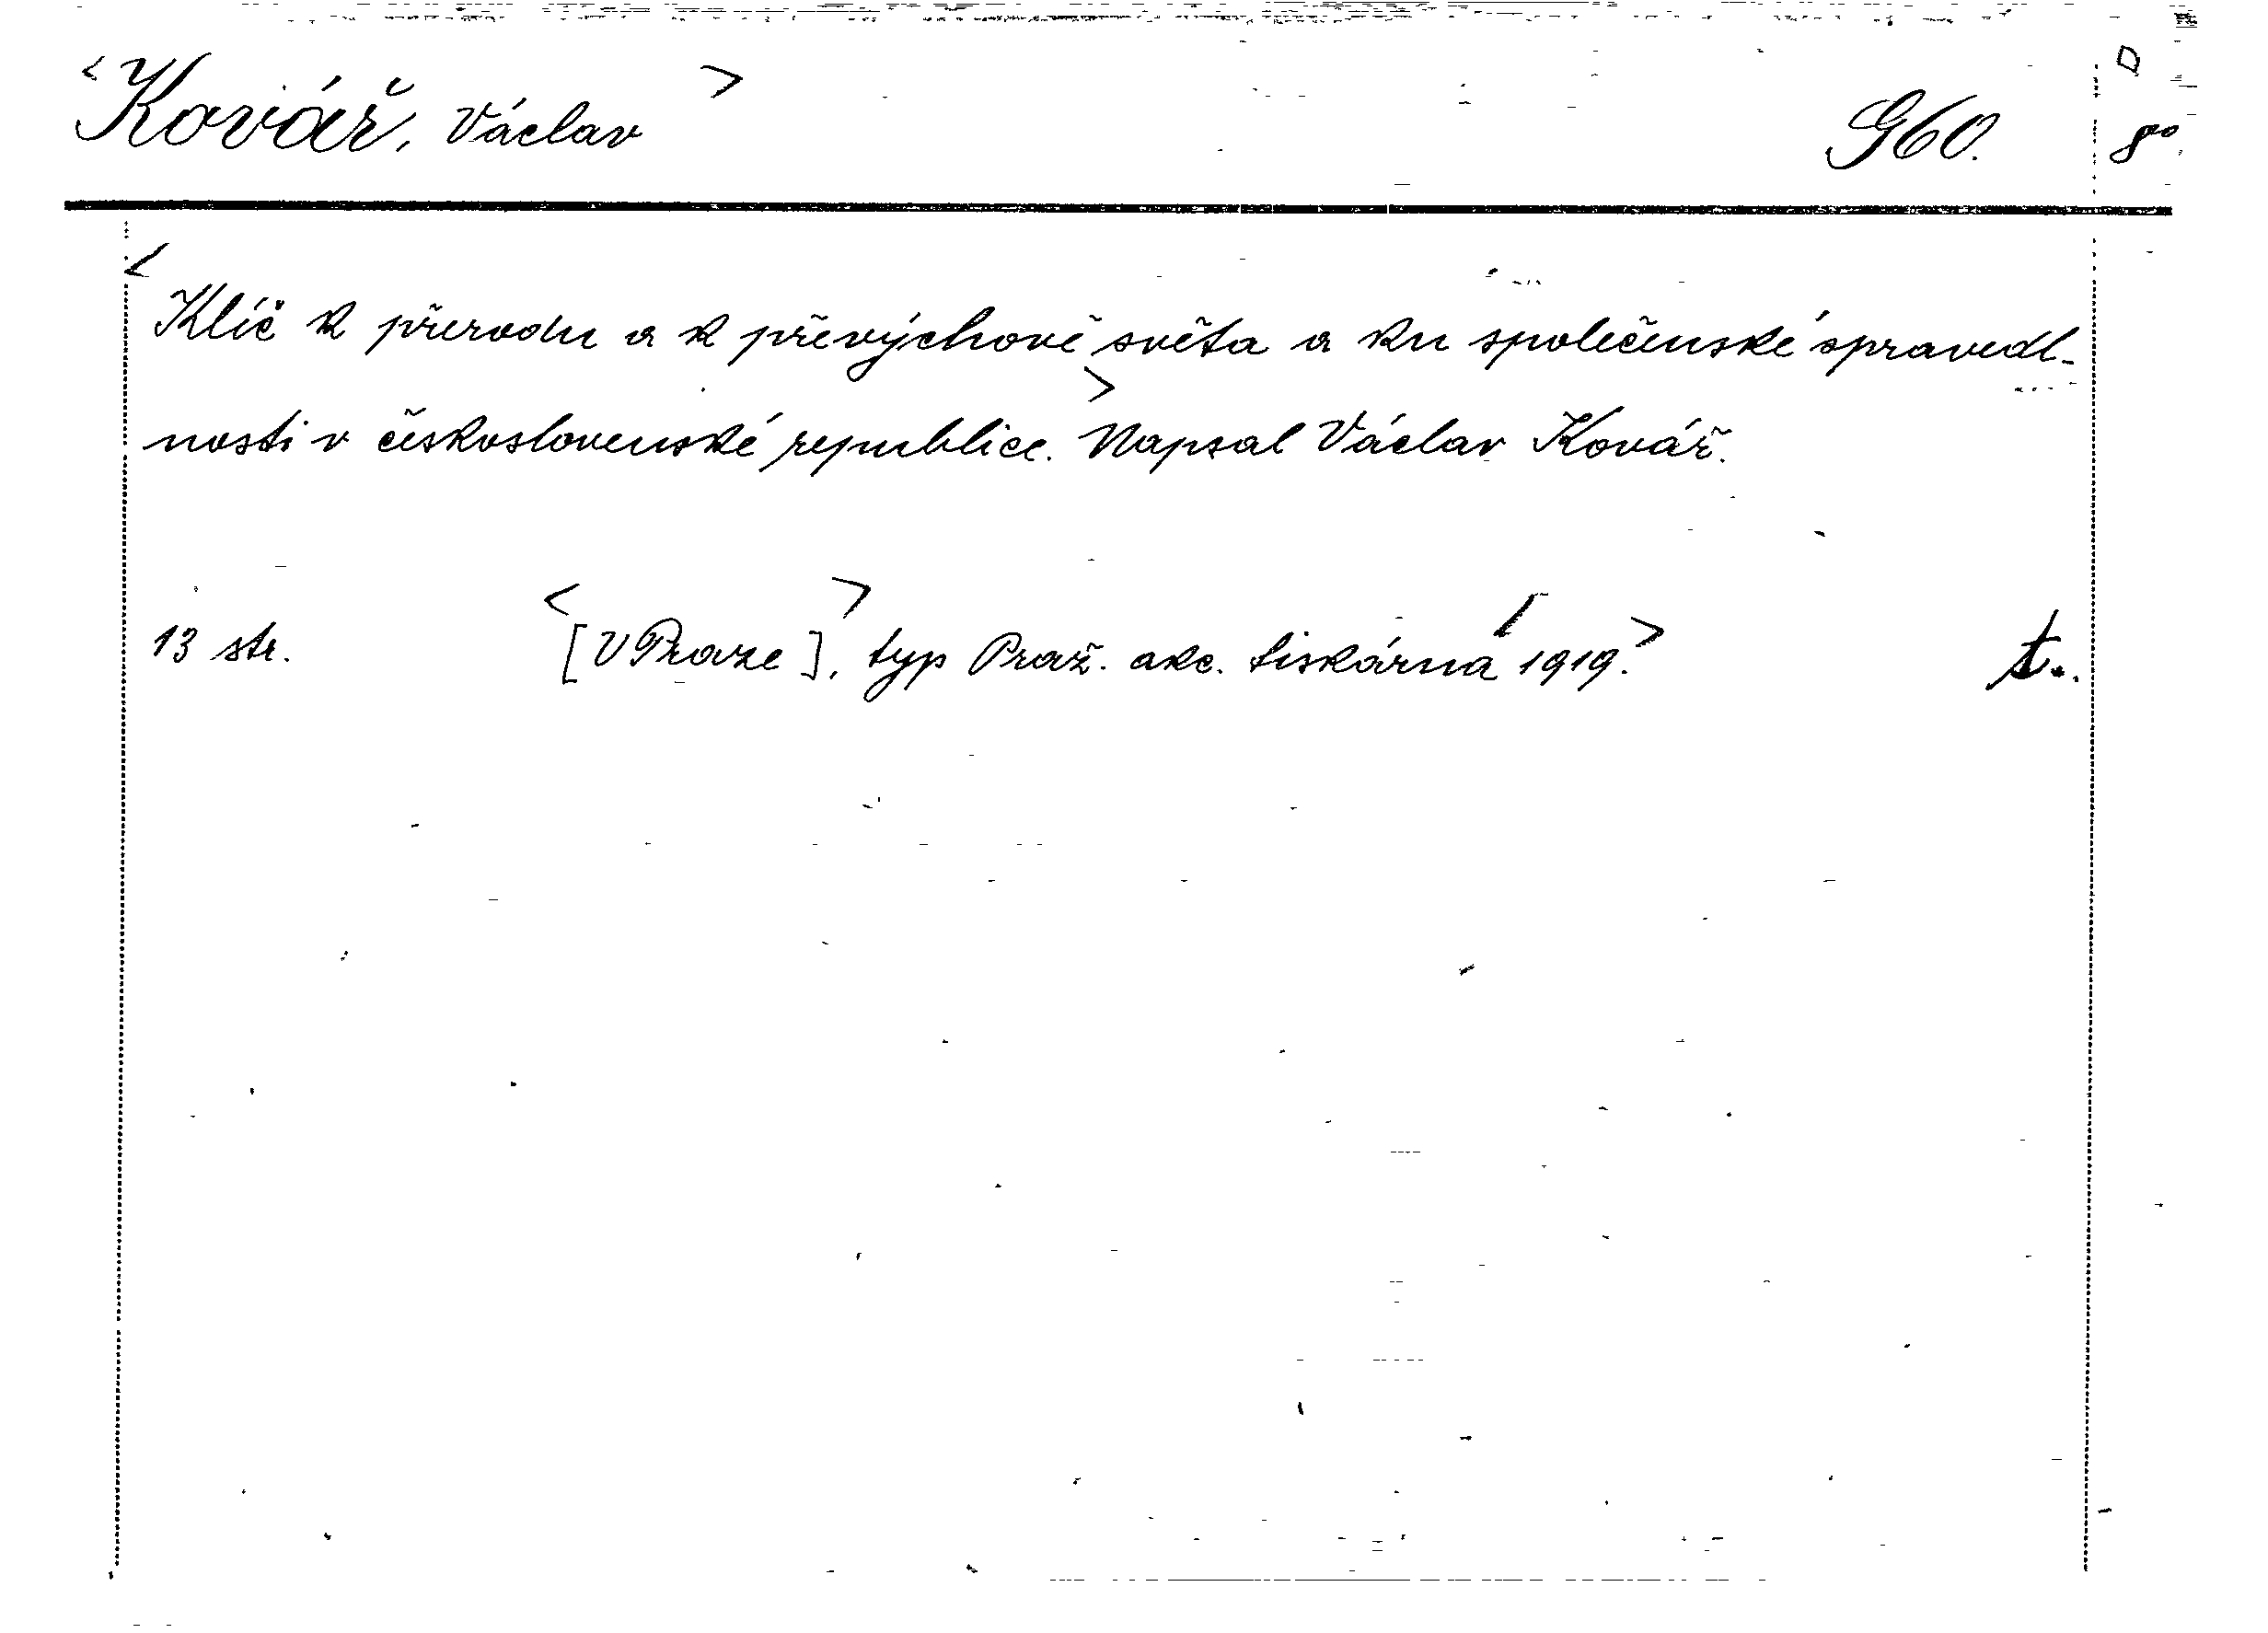 <Kovář, Václav> G60. 8°
<Klíč k přerodu a k převýchově světa a ku společenské spravedl-
nosti v československé republice.> Napsal Václav Kovář.
13 str. <[V Praze]>, typ Praž. akc. tiskárna 1919.> t..